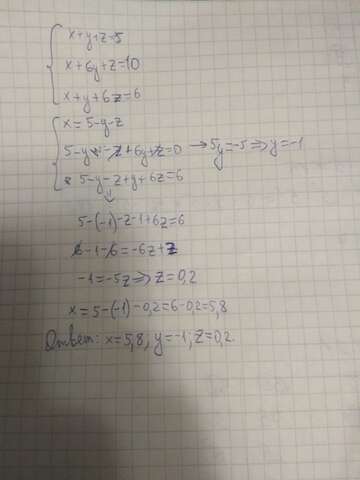 x+y+z=5
x+6y+z=10
x+y+6z=6
x=5-y-z
5-y-z+6y+z=0 → 5y=-5 ⇒ y=-1
5-y-z+y+6z=6
⇓
5-(-1)-z-1+6z=6
6-1-6=-6z+z
-1=-5z ⇒ z=0,2
x=5-(-1)-0,2=6-0,2=5,8
Ответ: x=5,8, y=-1; z=0,2.